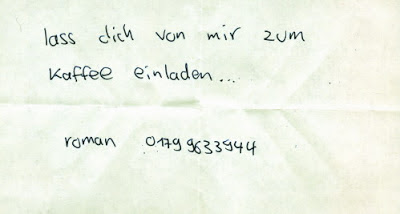 lass dich von mir zum
Kaffee einladen...
roman 0179 9633944